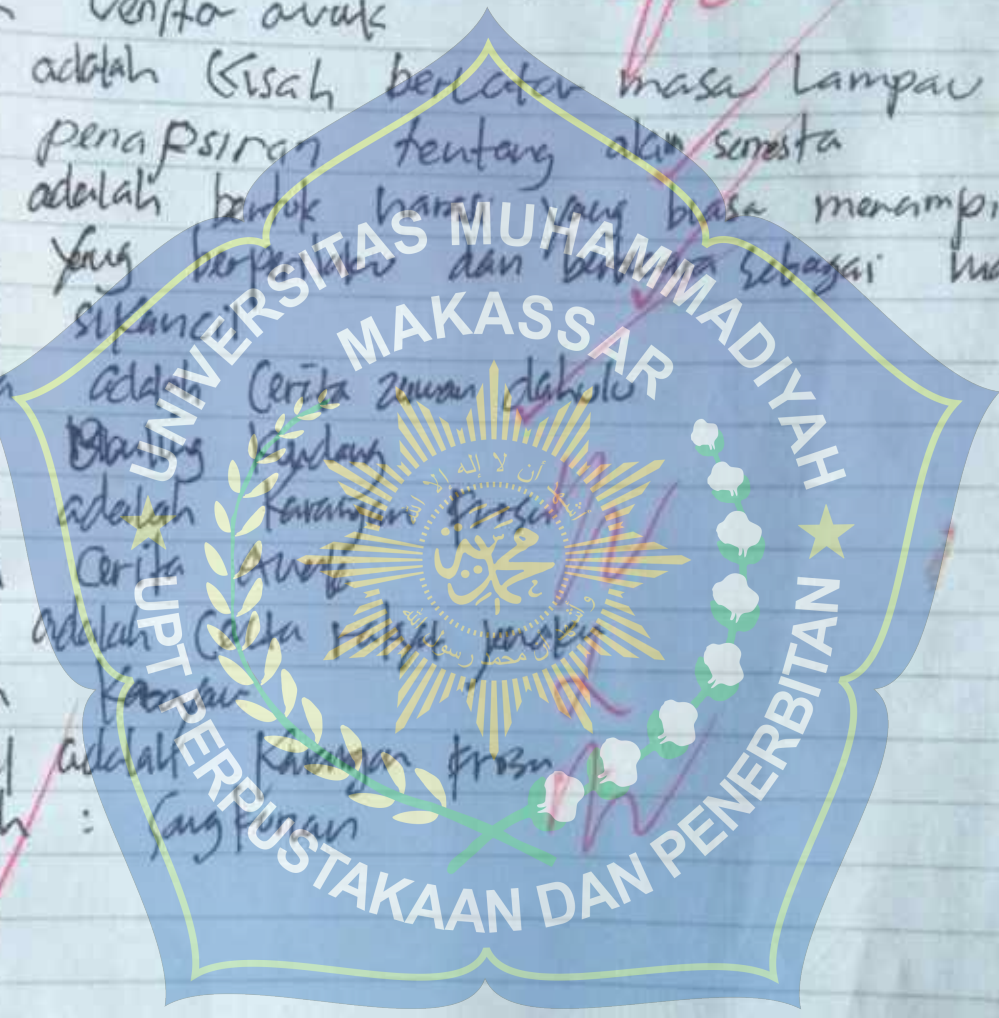 Cerita anak
adalah Kisah berlatar masa Lampau
penapsiran tentang alam semesta
adalah bentuk yang biasa menampi
yang berperilaku dan berbicara Sebagai ma
sikancil
adalah Cerita zaman dahulu
adalah Karangan Prosa
Cerita Anak
adalah Cerita rakyat jenaka
Kabayan
adalah Karangan Prosa
:
UNIVERSITAS MUHAMMADIYAH
MAKASSAR
UPT PERPUSTAKAAN DAN PENERBITAN